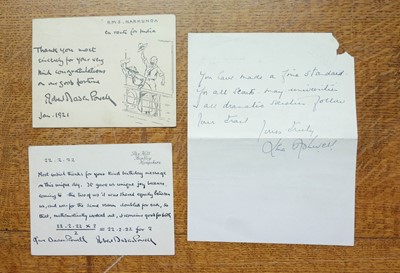 R.M.S. NARKUNDA
En route for India
Thank you most
sincerely for your very
kind congratulations
on our good fortune
Robert Baden Powell
Jan. 1921
22. 2. 22
Pax Hill
Bentley
Hampshire
Most united thanks for your kind birthday message
on this unique day. It gave us unique joy because
coming to the two of us it was shared equally between
us, and was for the same reason doubled for each, so
that, mathematically worked out, it remains good for both
22-2-22 = 22-2-22 for
Olave Baden Powell Robert Baden Powell
You have made a fine standard
for all Scouts may
& all dramatic societies follow
your trail
Yours truly,